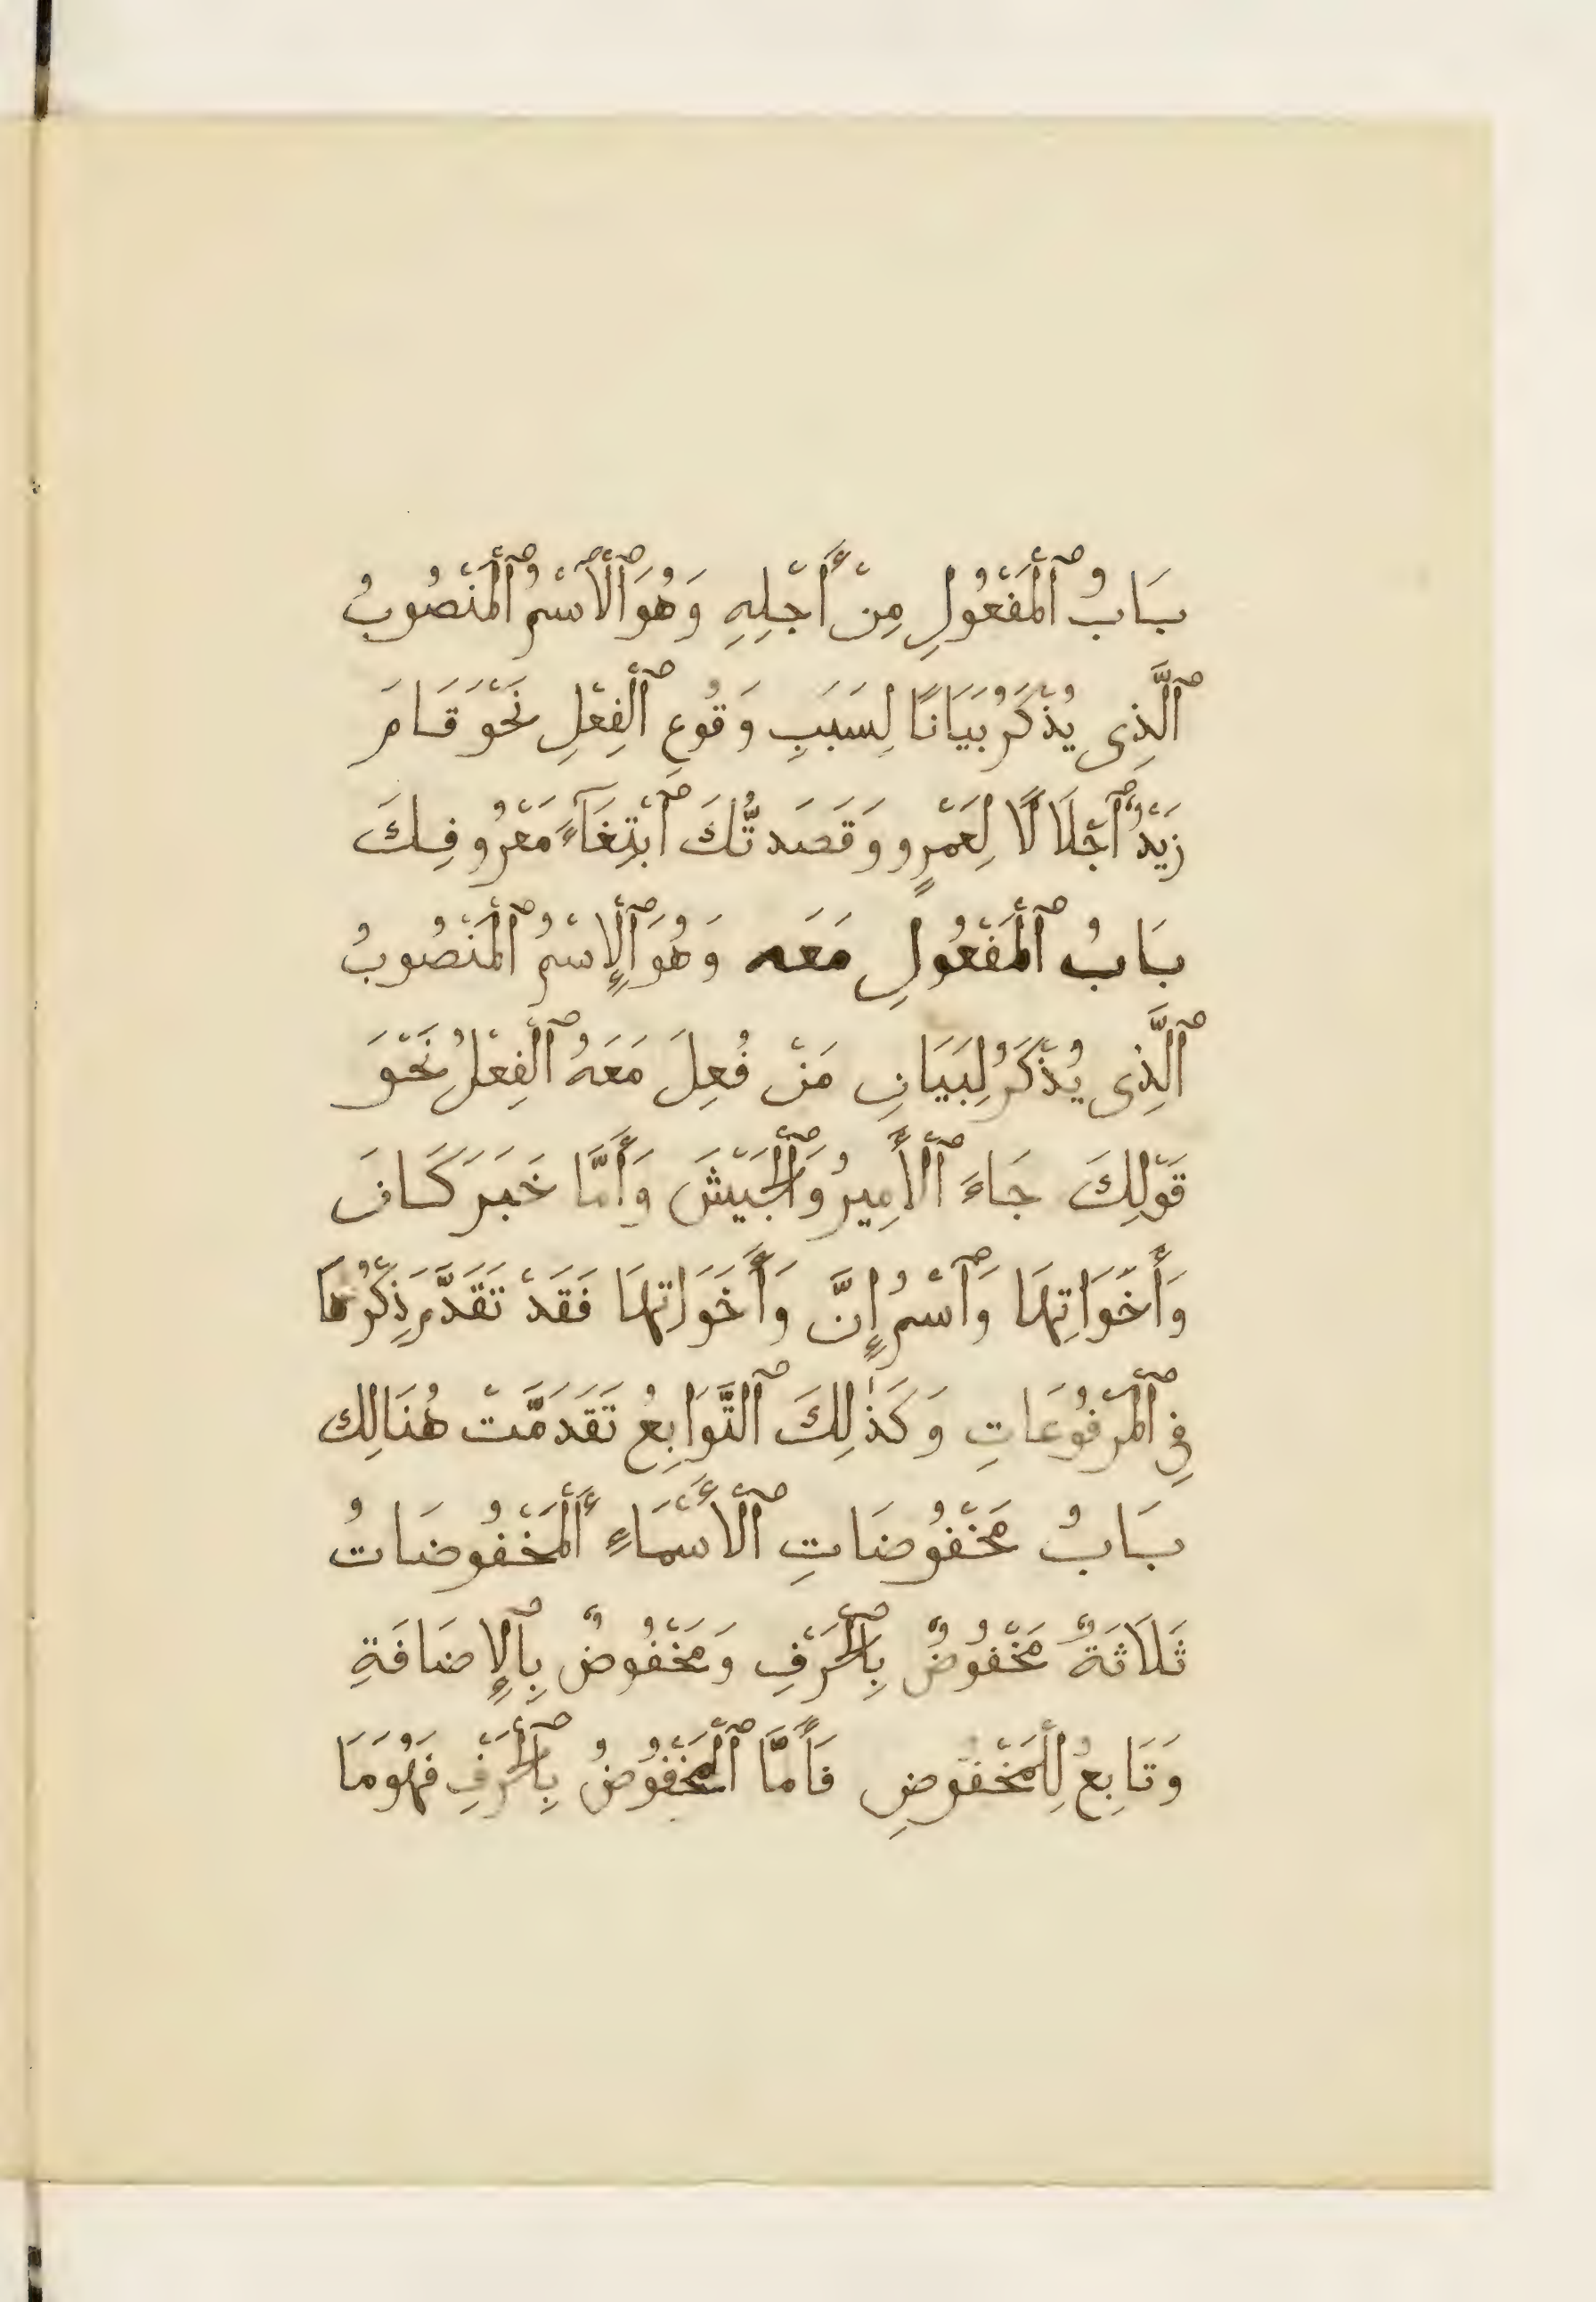 بَابُ ٱلْمَفْعُولِ مِنْ أَجْلِهِ وَهُوَ ٱلْٱسْمُ ٱلْمَنْصُوبُ
ٱلَّذِى يُذْكَرُ بَيَانًا لِسَبَبِ وَقُوعِ ٱلْفِعْلِ نَحْوَ قَامَ
زَيْدٌ ٱجْلَالًا لِعَمْرٍو وَقَصَدتُّكَ ٱبْتِغَآءً مَعْرُوفِكَ
بَابُ ٱلْمَفْعُولِ مَعَه وَهُوَ ٱلْإِسْمُ ٱلْمَنْصُوبُ
ٱلَّذِى يُذْكَرُ لِبَيَانِ مَنْ فُعِلَ مَعَهُ ٱلْفِعْلُ نَحْوَ
قَوْلِكَ جَاءَ ٱلْأَمِيرُ وَٱلْجَيْشَ وَأَمَّا خَبَرَ كَانَ
وَأَخَوَاتِهَا وَٱسْمُ إِنَّ وَأَخَوَاتِهَا فَقَدْ تَقَدَّمَ ذِكْرُهَا
فِى ٱلْمَرْفُوعَاتِ وَكَذٰلِكَ ٱلتَّوَابِعُ تَقَدَمَّتْ هُنَالِك
بَابُ مَخْفُوضَاتِ ٱلْأَسْمَاءِ أَلْمَخْفُوضَاتُ
ثَلَاثَةٌ مَخْفُوضٌ بِٱلْحَرْفِ وَمَخْفُوضٌ بِٱلْإِضَافَةِ
وَتَابِعُ لِلْمَخْفُوضِ فَأَمَّا ٱلْمَخْفُوضُ بِٱلْحَرْفِ فَهُوَ مَا